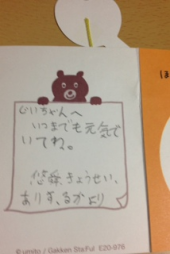 じいちゃんへ
いつまでも元気で
いてね。
悠保、きょうせい、
ありす、るかより
©umito / Gakken Sta:Ful E20-876